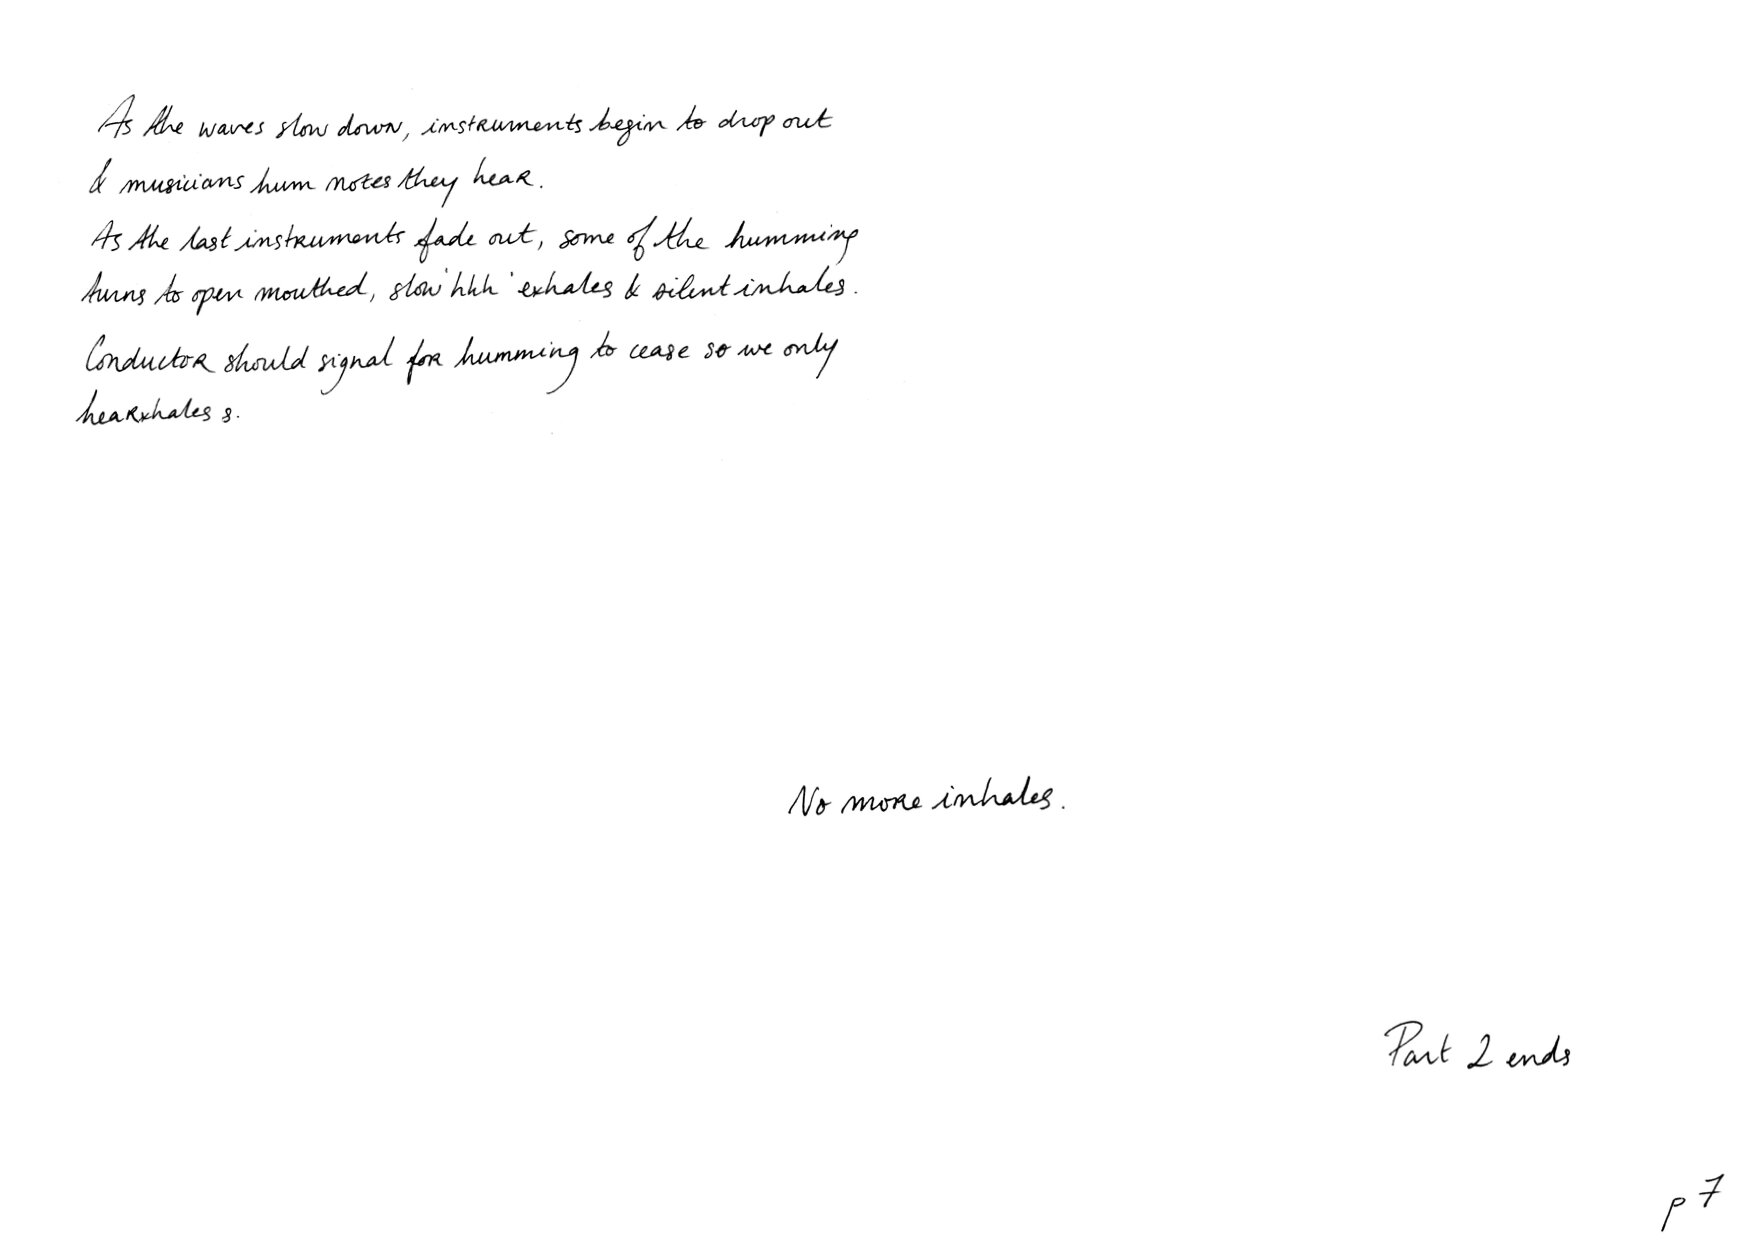 As the waves slow down, instruments begin to drop out
& musicians hum notes they hear.
As the last instruments fade out, some of the humming
turns to open mouthed, slow 'hhh' exhales & silent inhales.
Conductor should signal for humming to cease so we only
hearxhales s.
No more inhales.
Part 2 ends
p 7